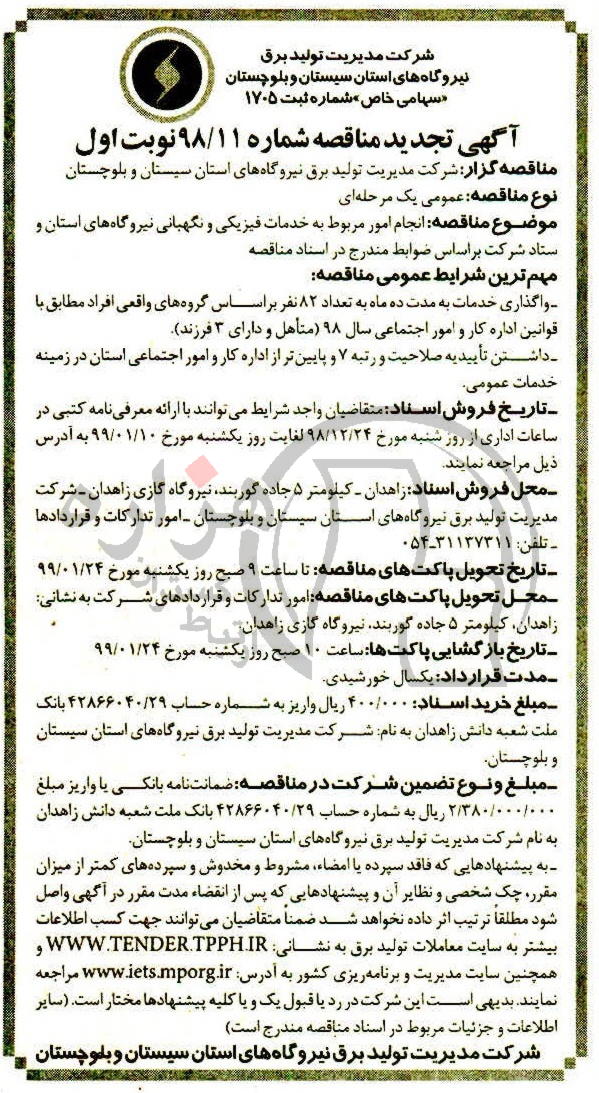 شرکت مدیریت تولید برق
نیروگاه‌های استان سیستان و بلوچستان
«سهامی خاص» شماره ثبت ۱۷۰۵
آگهی تجدید مناقصه شماره ۹۸/۱۱ نوبت اول
مناقصه گزار: شرکت مدیریت تولید برق نیروگاه‌های استان سیستان و بلوچستان
نوع مناقصه: عمومی یک مرحله‌ای
موضوع مناقصه: انجام امور مربوط به خدمات فیزیکی و نگهبانی نیروگاه‌های استان و
ستاد شرکت براساس ضوابط مندرج در اسناد مناقصه
مهم‌ترین شرایط عمومی مناقصه:
ـ واگذاری خدمات به مدت ده ماه به تعداد ۸۲ نفر براساس گروه‌های واقعی افراد مطابق با
قوانین اداره کار و امور اجتماعی سال ۹۸ (متأهل و دارای ۳ فرزند).
ـ داشتن تأییدیه صلاحیت و رتبه ۷ و پایین‌تر از اداره کار و امور اجتماعی استان در زمینه
خدمات عمومی.
ـ تاریخ فروش اسناد: متقاضیان واجد شرایط می‌توانند با ارائه معرفی‌نامه کتبی در
ساعات اداری از روز شنبه مورخ ۹۸/۱۲/۲۴ لغایت روز یکشنبه مورخ ۹۹/۰۱/۱۰ به آدرس
ذیل مراجعه نمایند.
ـ محل فروش اسناد: زاهدان ـ کیلومتر ۵ جاده گوربند، نیروگاه گازی زاهدان ـ شرکت
مدیریت تولید برق نیروگاه‌های استان سیستان و بلوچستان ـ امور تدارکات و قراردادها
ـ تلفن: ۳۱۱۳۷۳۱۱-۰۵۴
ـ تاریخ تحویل پاکت‌های مناقصه: تا ساعت ۹ صبح روز یکشنبه مورخ ۹۹/۰۱/۲۴
ـ محل تحویل پاکت‌های مناقصه: امور تدارکات و قراردادهای شرکت به نشانی:
زاهدان، کیلومتر ۵ جاده گوربند، نیروگاه گازی زاهدان.
ـ تاریخ بازگشایی پاکت‌ها: ساعت ۱۰ صبح روز یکشنبه مورخ ۹۹/۰۱/۲۴
ـ مدت قرارداد: یکسال خورشیدی.
ـ مبلغ خرید اسناد: ۴۰۰/۰۰۰ ریال واریز به شماره حساب ۴۲۸۶۶۰۴۰/۲۹ بانک
ملت شعبه دانش زاهدان به نام: شرکت مدیریت تولید برق نیروگاه‌های استان سیستان
و بلوچستان.
ـ مبلغ و نوع تضمین شرکت در مناقصه: ضمانت‌نامه بانکی یا واریز مبلغ
۲/۳۸۰/۰۰۰/۰۰۰ ریال به شماره حساب ۴۲۸۶۶۰۴۰/۲۹ بانک ملت شعبه دانش زاهدان
به نام شرکت مدیریت تولید برق نیروگاه‌های استان سیستان و بلوچستان.
ـ به پیشنهادهایی که فاقد سپرده یا امضاء، مشروط و مخدوش و سپرده‌های کمتر از میزان
مقرر، چک شخصی و نظایر آن و پیشنهادهایی که پس از انقضاء مدت مقرر در آگهی واصل
شود مطلقاً ترتیب اثر داده نخواهد شد ضمناً متقاضیان می‌توانند جهت کسب اطلاعات
بیشتر به سایت معاملات تولید برق به نشانی: WWW.TENDER.TPPH.IR و
همچنین سایت مدیریت و برنامه‌ریزی کشور به آدرس: www.iets.mporg.ir مراجعه
نمایند. بدیهی است این شرکت در رد یا قبول یک و یا کلیه پیشنهادها مختار است. (سایر
اطلاعات و جزئیات مربوط در اسناد مناقصه مندرج است)
شرکت مدیریت تولید برق نیروگاه‌های استان سیستان و بلوچستان
هزاره